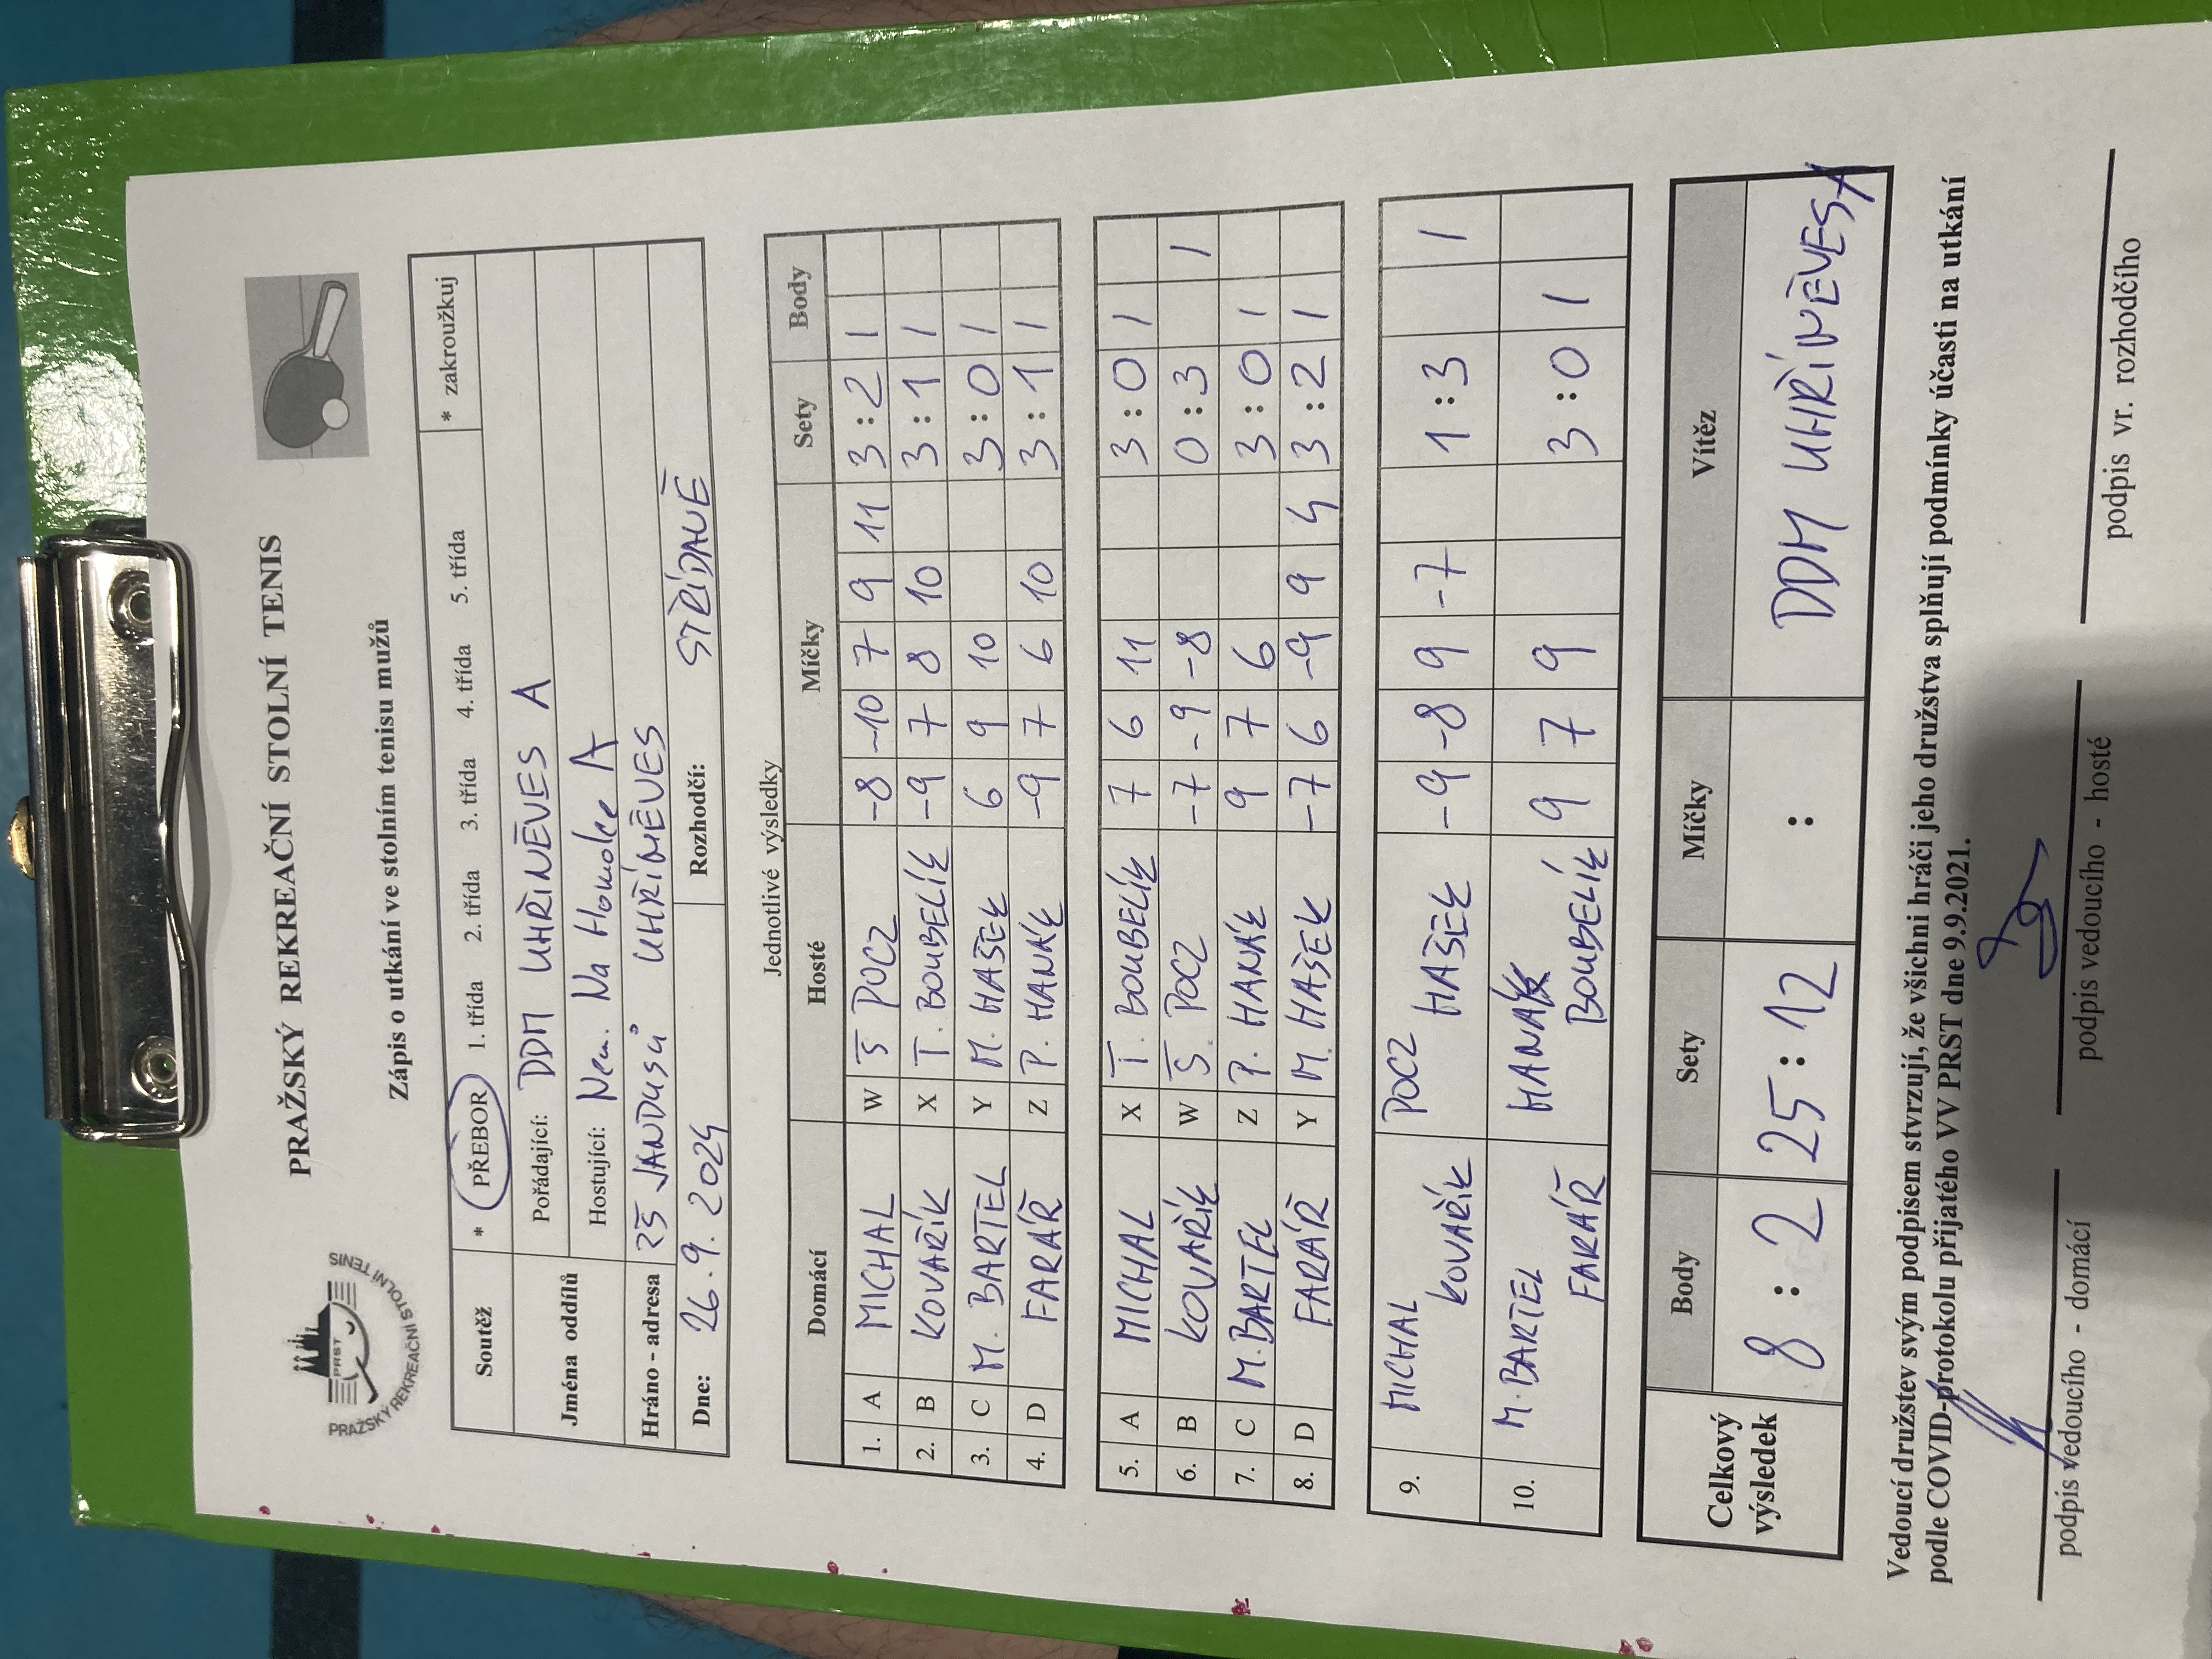 PRAŽSKÝ REKREAČNÍ STOLNÍ TENIS
PRST
PRAŽSKÝ REKREAČNÍ STOLNÍ TENIS
Zápis o utkání ve stolním tenisu mužů
Soutěž * PŘEBOR 1. třída 2. třída 3. třída 4. třída 5. třída * zakroužkuj
Jména oddílů Pořádající: DDM UHŘINĚVES A
Hostující: Nem. Na Homolce A
Hráno - adresa ZŠ JANDUSŮ UHŘÍNĚVES
Dne: 26.9.2024 Rozhodčí: STŘÍDAVĚ
Jednotlivé výsledky
Domácí Hosté Míčky Sety Body
1. A MICHAL W Š POCZ -8 -10 7 9 11 3:2 1
2. B KOVAŘÍK X T. BOUBELÍK -9 7 8 10 3:1 1
3. C M. BARTEL Y M. HAŠEK 6 9 10 3:0 1
4. D FARÁŘ Z P. HANÁK -9 7 6 10 3:1 1
5. A MICHAL X T. BOUBELÍK 7 6 11 3:0 1
6. B KOVAŘÍK W Š. POCZ -7 -9 -8 0:3 1
7. C M. BARTEL Z P. HANÁK 9 7 6 3:0 1
8. D FARÁŘ Y M. HAŠEK -7 6 -9 9 4 3:2 1
9. MICHAL KOVAŘÍK POCZ HAŠEK -9 -8 9 -7 1:3 1
10. M. BARTEL FARÁŘ HANÁK BOUBELÍK 9 7 9 3:0 1
Celkový výsledek Body Sety Míčky Vítěz
8 : 2 25 : 12 : DDM UHŘÍNĚVES A
Vedoucí družstev svým podpisem stvrzují, že všichni hráči jeho družstva splňují podmínky účasti na utkání
podle COVID-protokolu přijatého VV PRST dne 9.9.2021.
podpis vedoucího - domácí podpis vedoucího - hosté podpis vr. rozhodčího